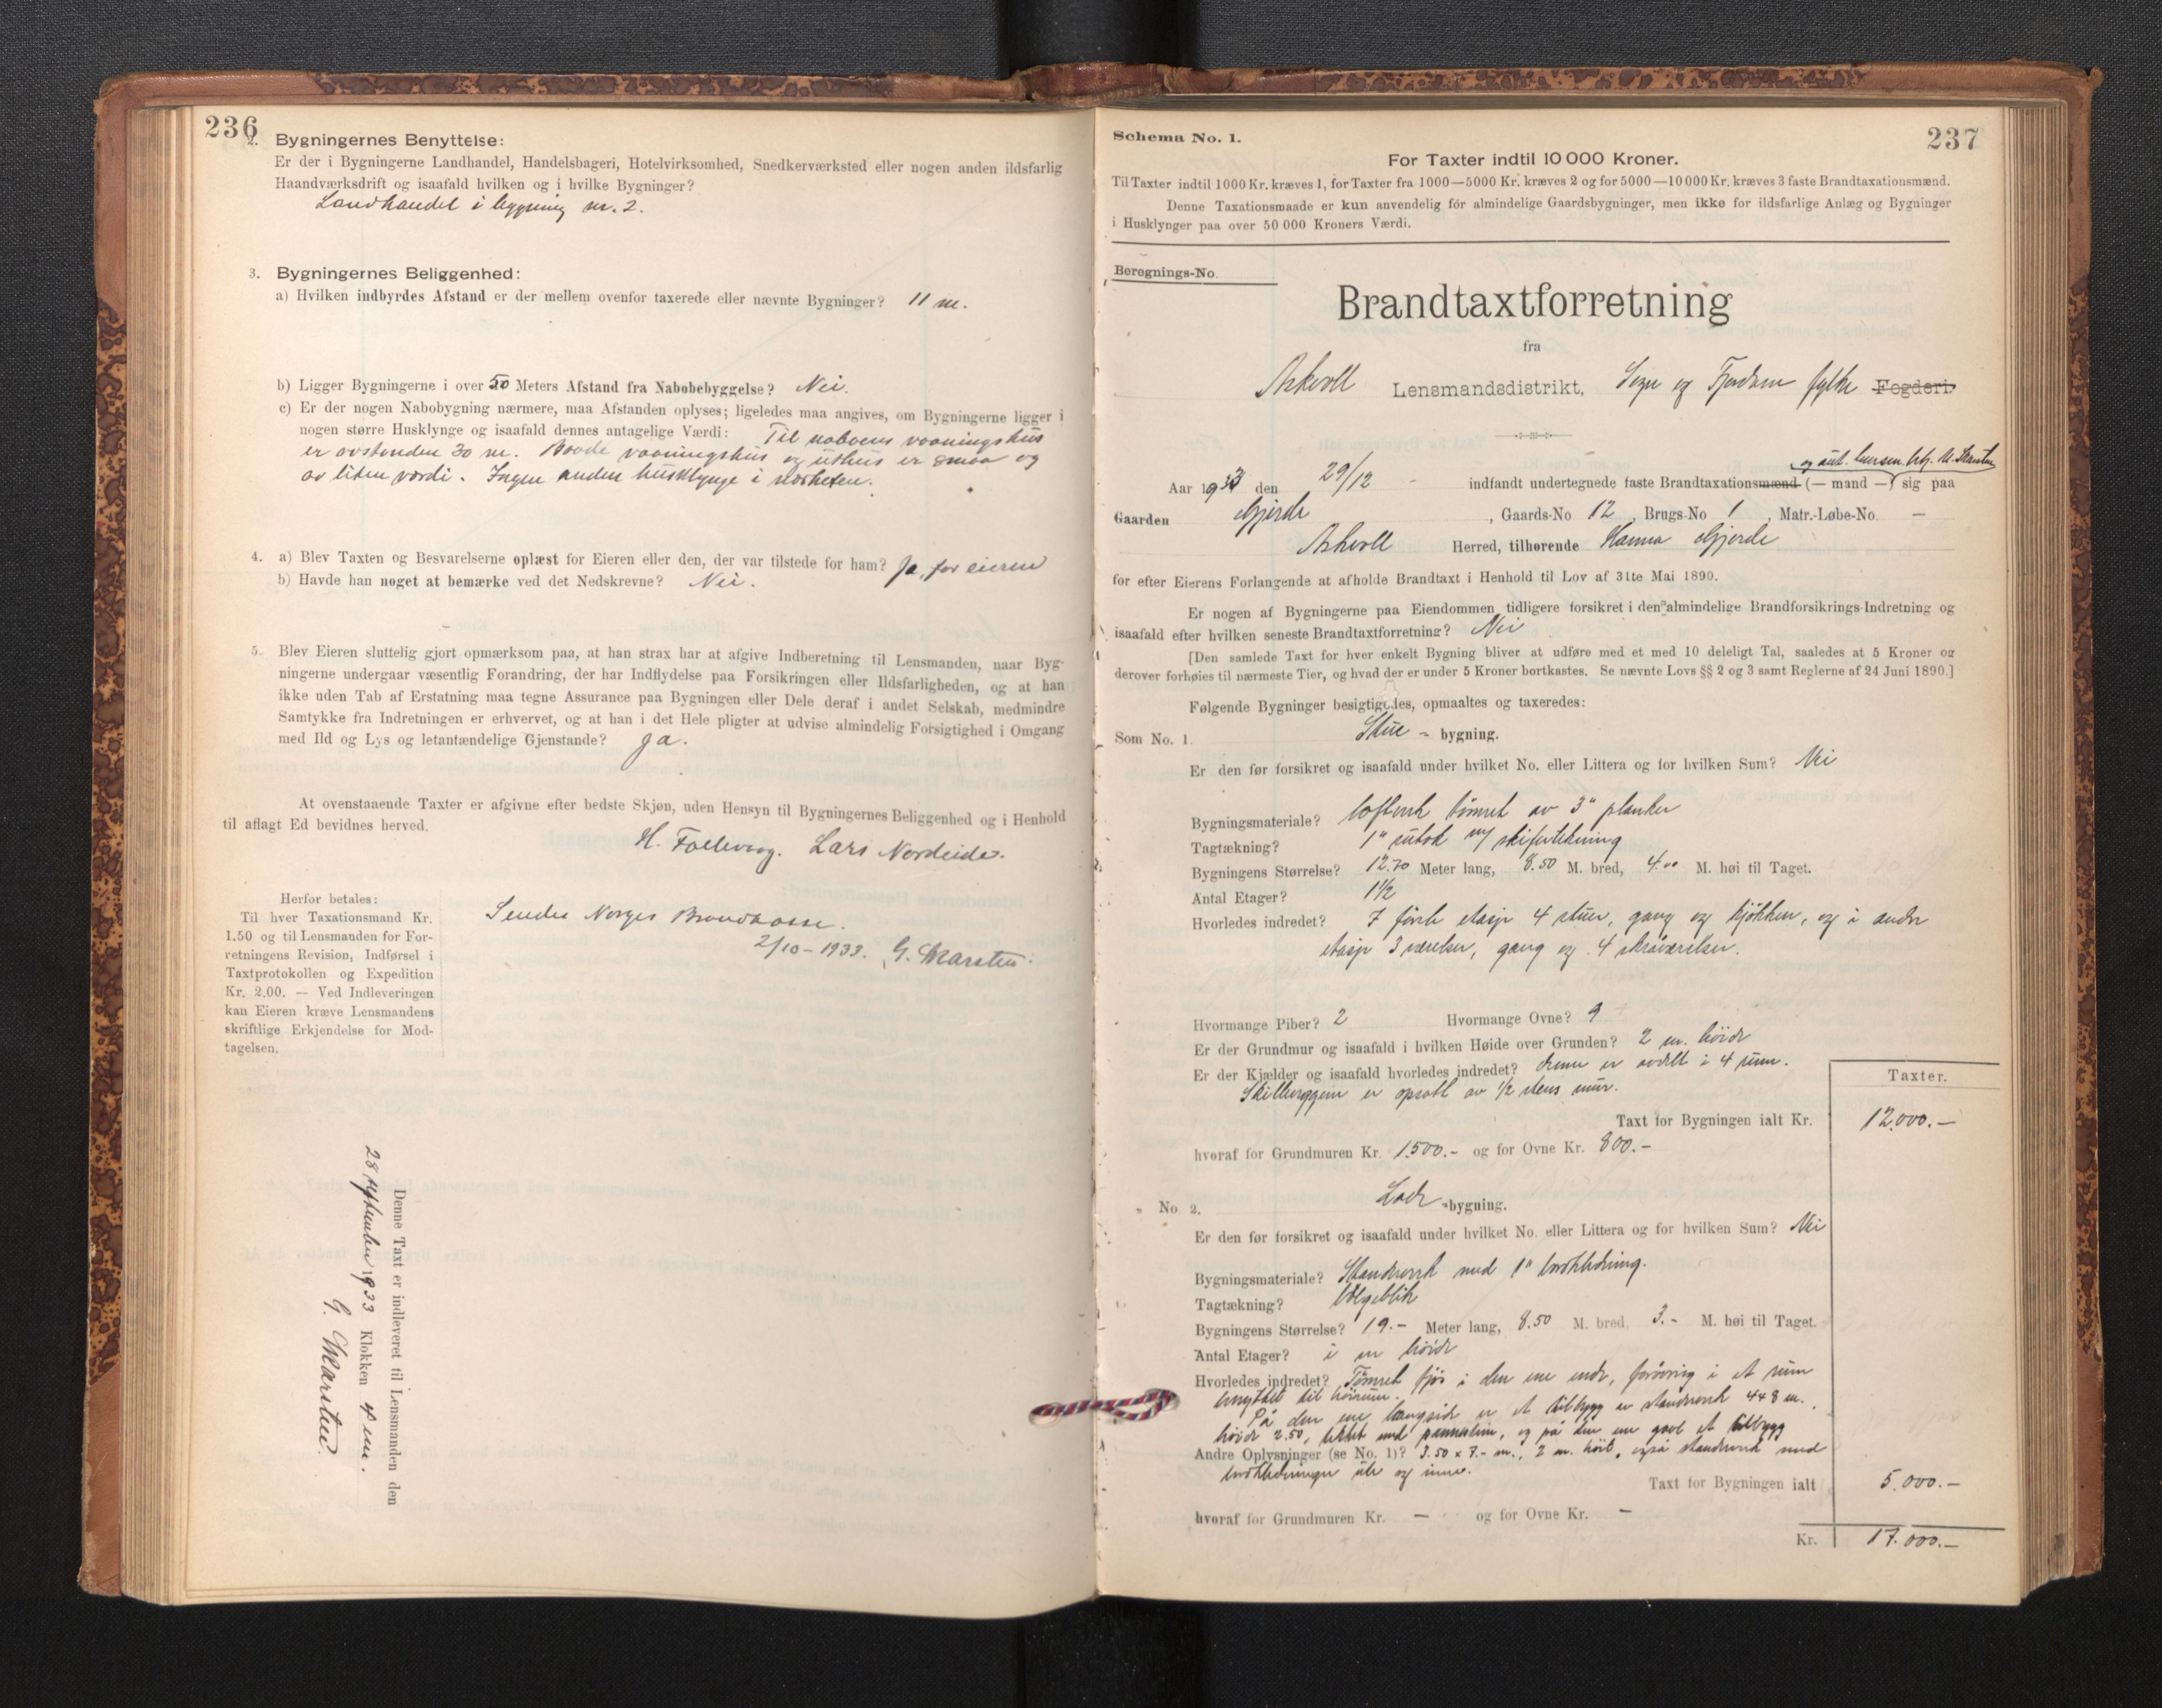 236
2. Bygningernes Benyttelse:
Er der i Bygningerne Landhandel, Handelsbageri, Hotelvirksomhed, Snedkerværksted eller nogen anden ildsfarlig
Haandværksdrift og isaafald hvilken og i hvilke Bygninger?
Landhandel i bygning nr. 2.
3. Bygningernes Beliggenhed:
a) Hvilken indbyrdes Afstand er der mellem ovenfor taxerede eller nævnte Bygninger? 11 m.
b) Ligger Bygningerne i over 50 Meters Afstand fra Nabobebyggelse? Nei.
c) Er der nogen Nabobygning nærmere, maa Afstanden oplyses; ligeledes maa angives, om Bygningerne ligger i
nogen større Husklynge og isaafald dennes antagelige Værdi: Til naboens vaaningshus
er avstanden 30 m. Baade vaaningshus og uthus er smaa og
av liten værdi. Ingen anden husklynge i nærheten.
4. a) Blev Taxten og Besvarelserne oplæst for Eieren eller den, der var tilstede for ham? Ja, for eieren
b) Havde han noget at bemærke ved det Nedskrevne? Nei.
5. Blev Eieren sluttelig gjort opmærksom paa, at han strax har at afgive Indberetning til Lensmanden, naar Byg-
ningerne undergaar væsentlig Forandring, der har Indflydelse paa Forsikringen eller Ildsfarligheden, og at han
ikke uden Tab af Erstatning maa tegne Assurance paa Bygningen eller Dele deraf i andet Selskab, medmindre
Samtykke fra Indretningen er erhvervet, og at han i det Hele pligter at udvise almindelig Forsigtighed i Omgang
med Ild og Lys og letantændelige Gjenstande? Ja.
At ovenstaaende Taxter er afgivne efter bedste Skjøn, uden Hensyn til Bygningernes Beliggenhed og i Henhold
til aflagt Ed bevidnes herved.
H. Folkevog. Lars Nordeide.
Herfor betales:
Til hver Taxationsmand Kr.
1.50 og til Lensmanden for For-
retningens Revision, Indførsel i
Taxtprotokollen og Expedition
Kr. 2.00. — Ved Indleveringen
kan Eieren kræve Lensmandens
skriftlige Erkjendelse for Mod-
tagelsen.
Sendes Norges Brandkasse.
2/10-1933. G. Marsteen.
Denne Taxt er indleveret til Lensmanden den
28 september 1933 Klokken 4 em.
G. Marsteen.
Schema No. 1.
237
For Taxter indtil 10 000 Kroner.
Til Taxter indtil 1000 Kr. kræves 1, for Taxter fra 1000—5000 Kr. kræves 2 og for 5000—10 000 Kr. kræves 3 faste Brandtaxationsmænd.
Denne Taxationsmaade er kun anvendelig for almindelige Gaardsbygninger, men ikke for ildsfarlige Anlæg og Bygninger
i Husklynger paa over 50 000 Kroners Værdi.
Beregnings-No.
Brandtaxtforretning
fra
Askvoll Lensmandsdistrikt, Sogn og Fjordane fylke Fogderi.
Aar 1933 den 29/12 indfandt undertegnede faste Brandtaxationsmænd (— mand —) sig paa
Gaarden Gjerde, Gaards-No 12, Brugs-No 1, Matr.-Løbe-No. —
Askvoll Herred, tilhørende Hanna Gjerde
for efter Eierens Forlangende at afholde Brandtaxt i Henhold til Lov af 31te Mai 1890.
Er nogen af Bygningerne paa Eiendommen tidligere forsikret i den almindelige Brandforsikrings-Indretning og
isaafald efter hvilken seneste Brandtaxtforretning? Nei
[Den samlede Taxt for hver enkelt Bygning bliver at udføre med et med 10 deleligt Tal, saaledes at 5 Kroner og
derover forhøies til nærmeste Tier, og hvad der er under 5 Kroner bortkastes. Se nævnte Lovs §§ 2 og 3 samt Reglerne af 24 Juni 1890.]
Følgende Bygninger besigtigedes, opmaaltes og taxeredes:
Som No. 1. Stue - bygning.
Er den før forsikret og isaafald under hvilket No. eller Littera og for hvilken Sum? Nei
Bygningsmateriale? Lofterk tømret av 3" planker
Tagtækning? 1" sutak m/ skifertekning
Bygningens Størrelse? 12.70 Meter lang, 8.50 M. bred, 4.00 M. høi til Taget.
Antal Etager? 1½
Hvorledes indredet? I første etasje 4 stuer, gang og kjøkken, og i andre
etasje 3 værelser, gang og 4 skråværelser.
Hvormange Piber? 2 Hvormange Ovne? 9
Er der Grundmur og isaafald i hvilken Høide over Grunden? 2 m. høide
Er der Kjælder og isaafald hvorledes indredet? denne er avdelt i 4 rum.
Skilleveggene er opsatt av ½ stens mur.
Taxter.
Taxt for Bygningen ialt Kr. 12.000.—
hvoraf for Grundmuren Kr. 1.500.- og for Ovne Kr. 800.-
" No 2. Løde -bygning.
Er den før forsikret og isaafald under hvilket No. eller Littera og for hvilken Sum? Nei
Bygningsmateriale? Standverk med 1" bordkledning.
Tagtækning? Bølgeblikk
Bygningens Størrelse? 19.- Meter lang, 8.50 M. bred, 3.- M. høi til Taget.
Antal Etager? i en høide
Hvorledes indredet? Tømret fjøs i den ene ende, forøvrig i et rum
benyttet til høirum.
På den ene langside er et tilbygg av standverk 4×8 m.
høide 2.50, tekket med pannestein, og på den ene gavl et tilbygg
Andre Oplysninger (se No. 1)? 3.50 x 7.- m., 2 m. høit, også standverk med
bordkledninger ute og inne.
Taxt for Bygningen ialt 5.000.—
hvoraf for Grundmuren Kr. — og for Ovne Kr. —
Kr. 17.000.—